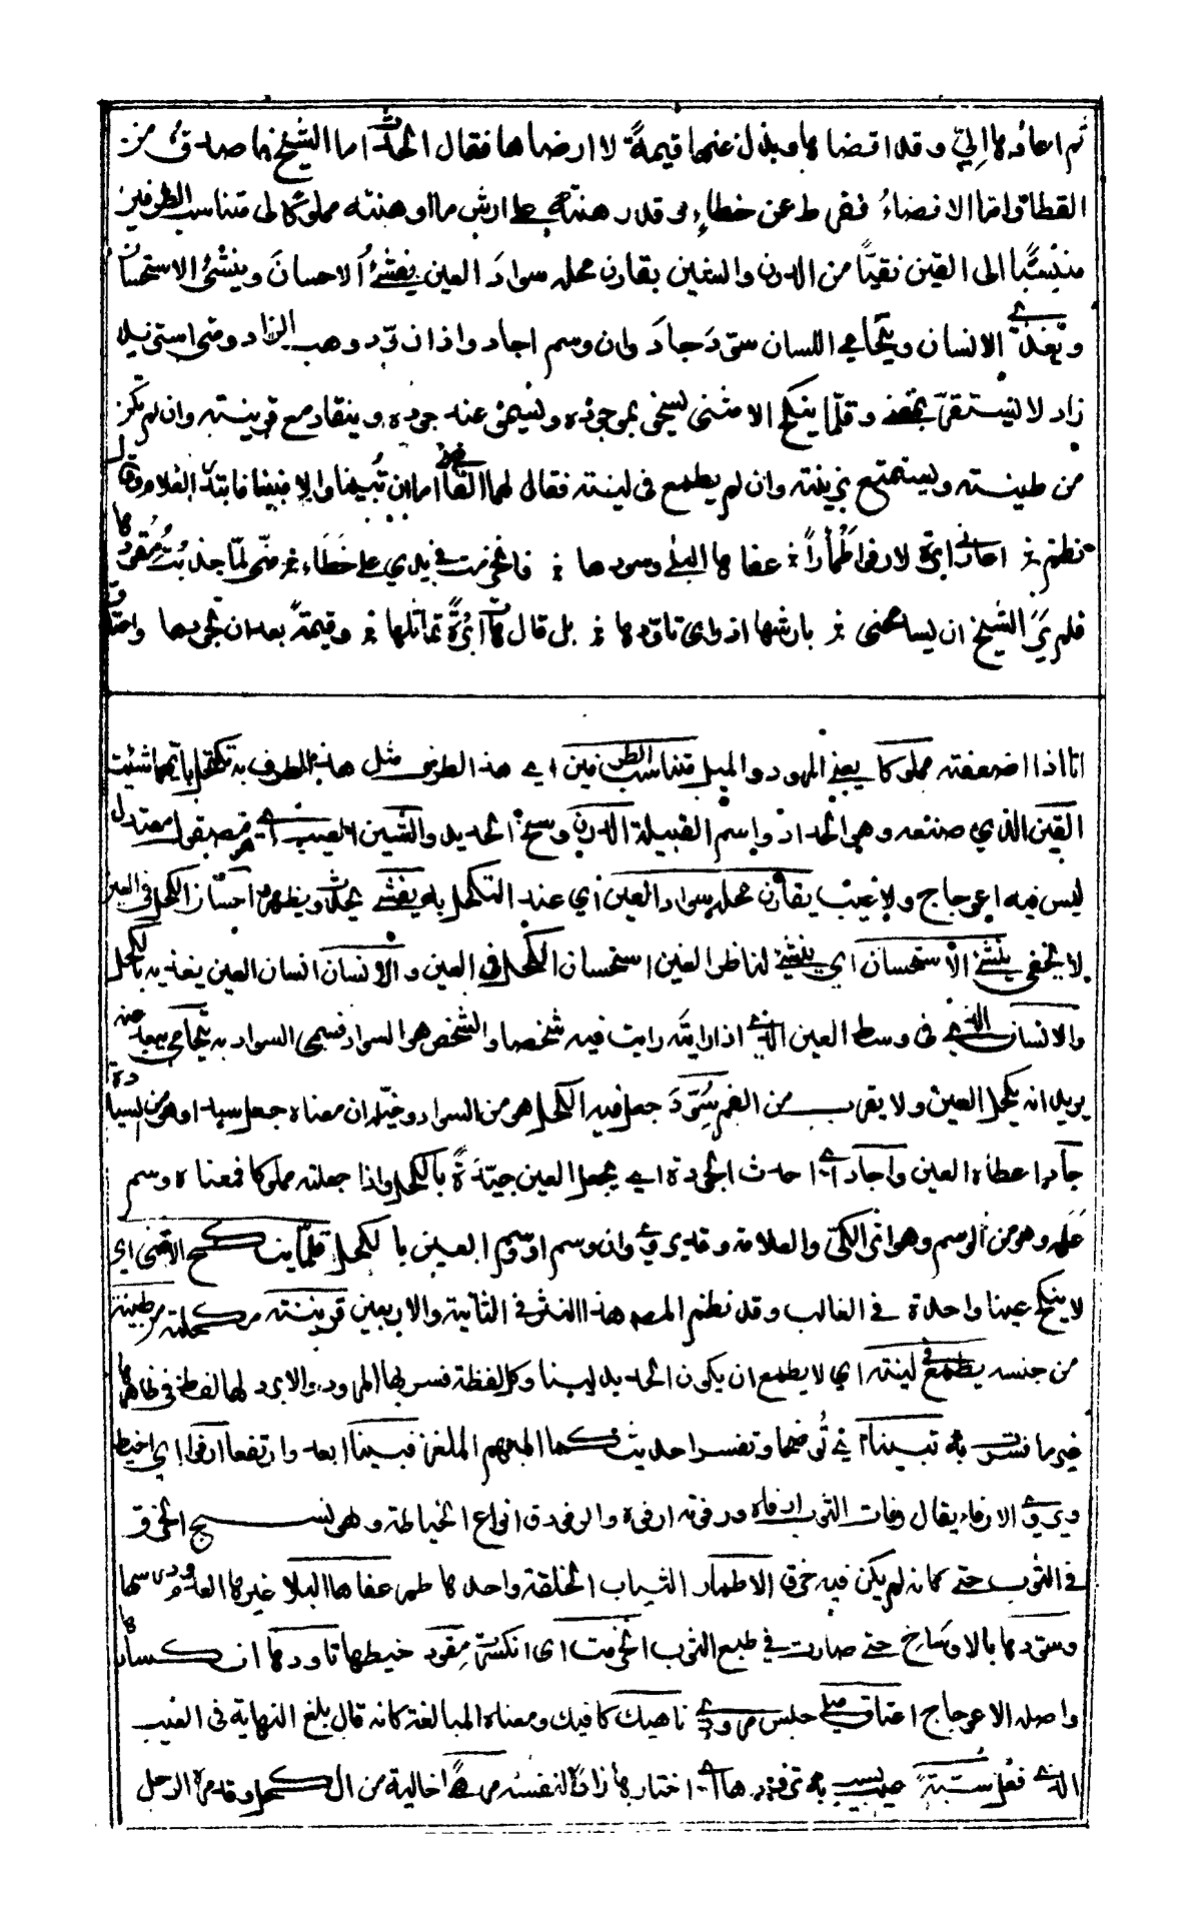 ثم اعادها اليّ وقد افضاها وبذل عنها قيمةً لا ارضاها فقال الحدث اما الشيخ فاصدق من
القطا واما الافضاءُ ففرط عن خطاءٍ وقد رهنته على ارش ما اوهنته مملوكا لى متناسب الطرفين
منتسبًا الى القين نقيًّا من الدرن والشين يقارن محله سوادَ العين يفشئُ الاحسانَ وينشئُ الاستحسان
ويغذى الانسان ويتحامى اللسان ان سوّدَ جادَ وان وسم اجاد واذا زوّد وهب الزاد ومتى استزيد
زاد لا يستقرّ بمغنى وقلّما ينكح الا مثنى يسخى بموجوده ويسمو عند جوده وينقاد مع قرينته وان لم تكن
من طينته ويستمتع بزينته وان لم يطمع فى لينته فقال لهما القاضى اما ان تُبينا والا فبينا فابتدر الغلام وقال
نظم ؛ اعارنى ابرةً لارفو اطمارًا ؛ عفاها البلى وسودها ؛ فانخرمت في يدي على خَطَاءٍ ؛ منّى لمّا جذبتُ مِقودها
فلم يَرَ الشيخ ان يسامحنى ؛ بارشها اذ راى تاوّدها ؛ بل قال هات ابرةً تماثلها ؛ وقيمةً بعد ان تجودها واعتاق
اذا اضعفته مملوكا يعني المرود والميل متناسب الطرفين اى هذا الطرف مثل هذا الطرف به تكتحل بايّهما شئت
القين الذي صنعه وهو الحداد واسم القبيلة الدرن وسخ الحديد والشين العيب اى هو مصقول معتدل
ليس فيه اعوجاج ولا عيب يقارن محله سواد العين أي عند التكحل به يفشى يحدث ويظهر احسان الكحل فى العين
لا يخفى ينشئ الاستحسان اي ينشئ لناظر العين استحسان الكحل في العين والانسان انسان العين يغذيه بالكحل
والانسان الذى فى وسط العين الذى اذا رايته رايت فيه شخصا والشخص هو السواد فسمى السواد به يتحامى يبعد عنه
يريد انه يكحل العين ولا يقرب من الفم سُوّدَ جعل فيه الكحل هو من السواد وقيل ان معناه جعل سيدا وهو من السيادة
جاد اعطاه العين واجاد اى احدث الجودة اى يجعل العين جيّدةً بالكحل واذا جعلته مملوكا فمعناه وسم
عَلّم وهو من الوسم وهو اثر الكىّ والعلامة وقد يروى وان وسم اى وسم العين بالكحل قلّما ينكح الا مثنى اى
لا ينكح عينا واحدة في الغالب وقد نظم المص هذا النثر في الثانية والاربعين قرينته مكحلته من طينته
من جنسه يطمع فى لينته اي لا يطمع ان يكون الحديد لينا وكل لفظة فسر بها المرود والابرة لها لفظ في ظاهرها
غير ما فسّر به تبينا اى تُوضحا وتفسرا حديثكما المبهم الملغز فبينا ابعدا وارتفعا ارفو اي اخيط
ويروى الارفاء يقال رفات الثوب ارفاه ورفوته ارفوه والرفو دق انواع الخياطة وهو نسج الخرق
في الثوب حتى كانه لم يكن فيه خرق الاطمار الثياب الخلقة واحدها طمر عفاها البلا غيرها القدم ودرسها
وسوّدها بالاوساخ حتى صارت في طبع الثوب انخرمت اى انكسرت مِقود خيطها تاودها انكسارها
واصله الاعوجاج اعتاق ميلى حبس مرودى ناهيك كافيك ومعناه المبالغة كانه قال بلغ النهاية فى العيب
الذى فعل سُبّةً عيب يسب به تزودها اى اختارها زادًا لنفسه مرهًا خالية من الكحل وقد مره الرجل